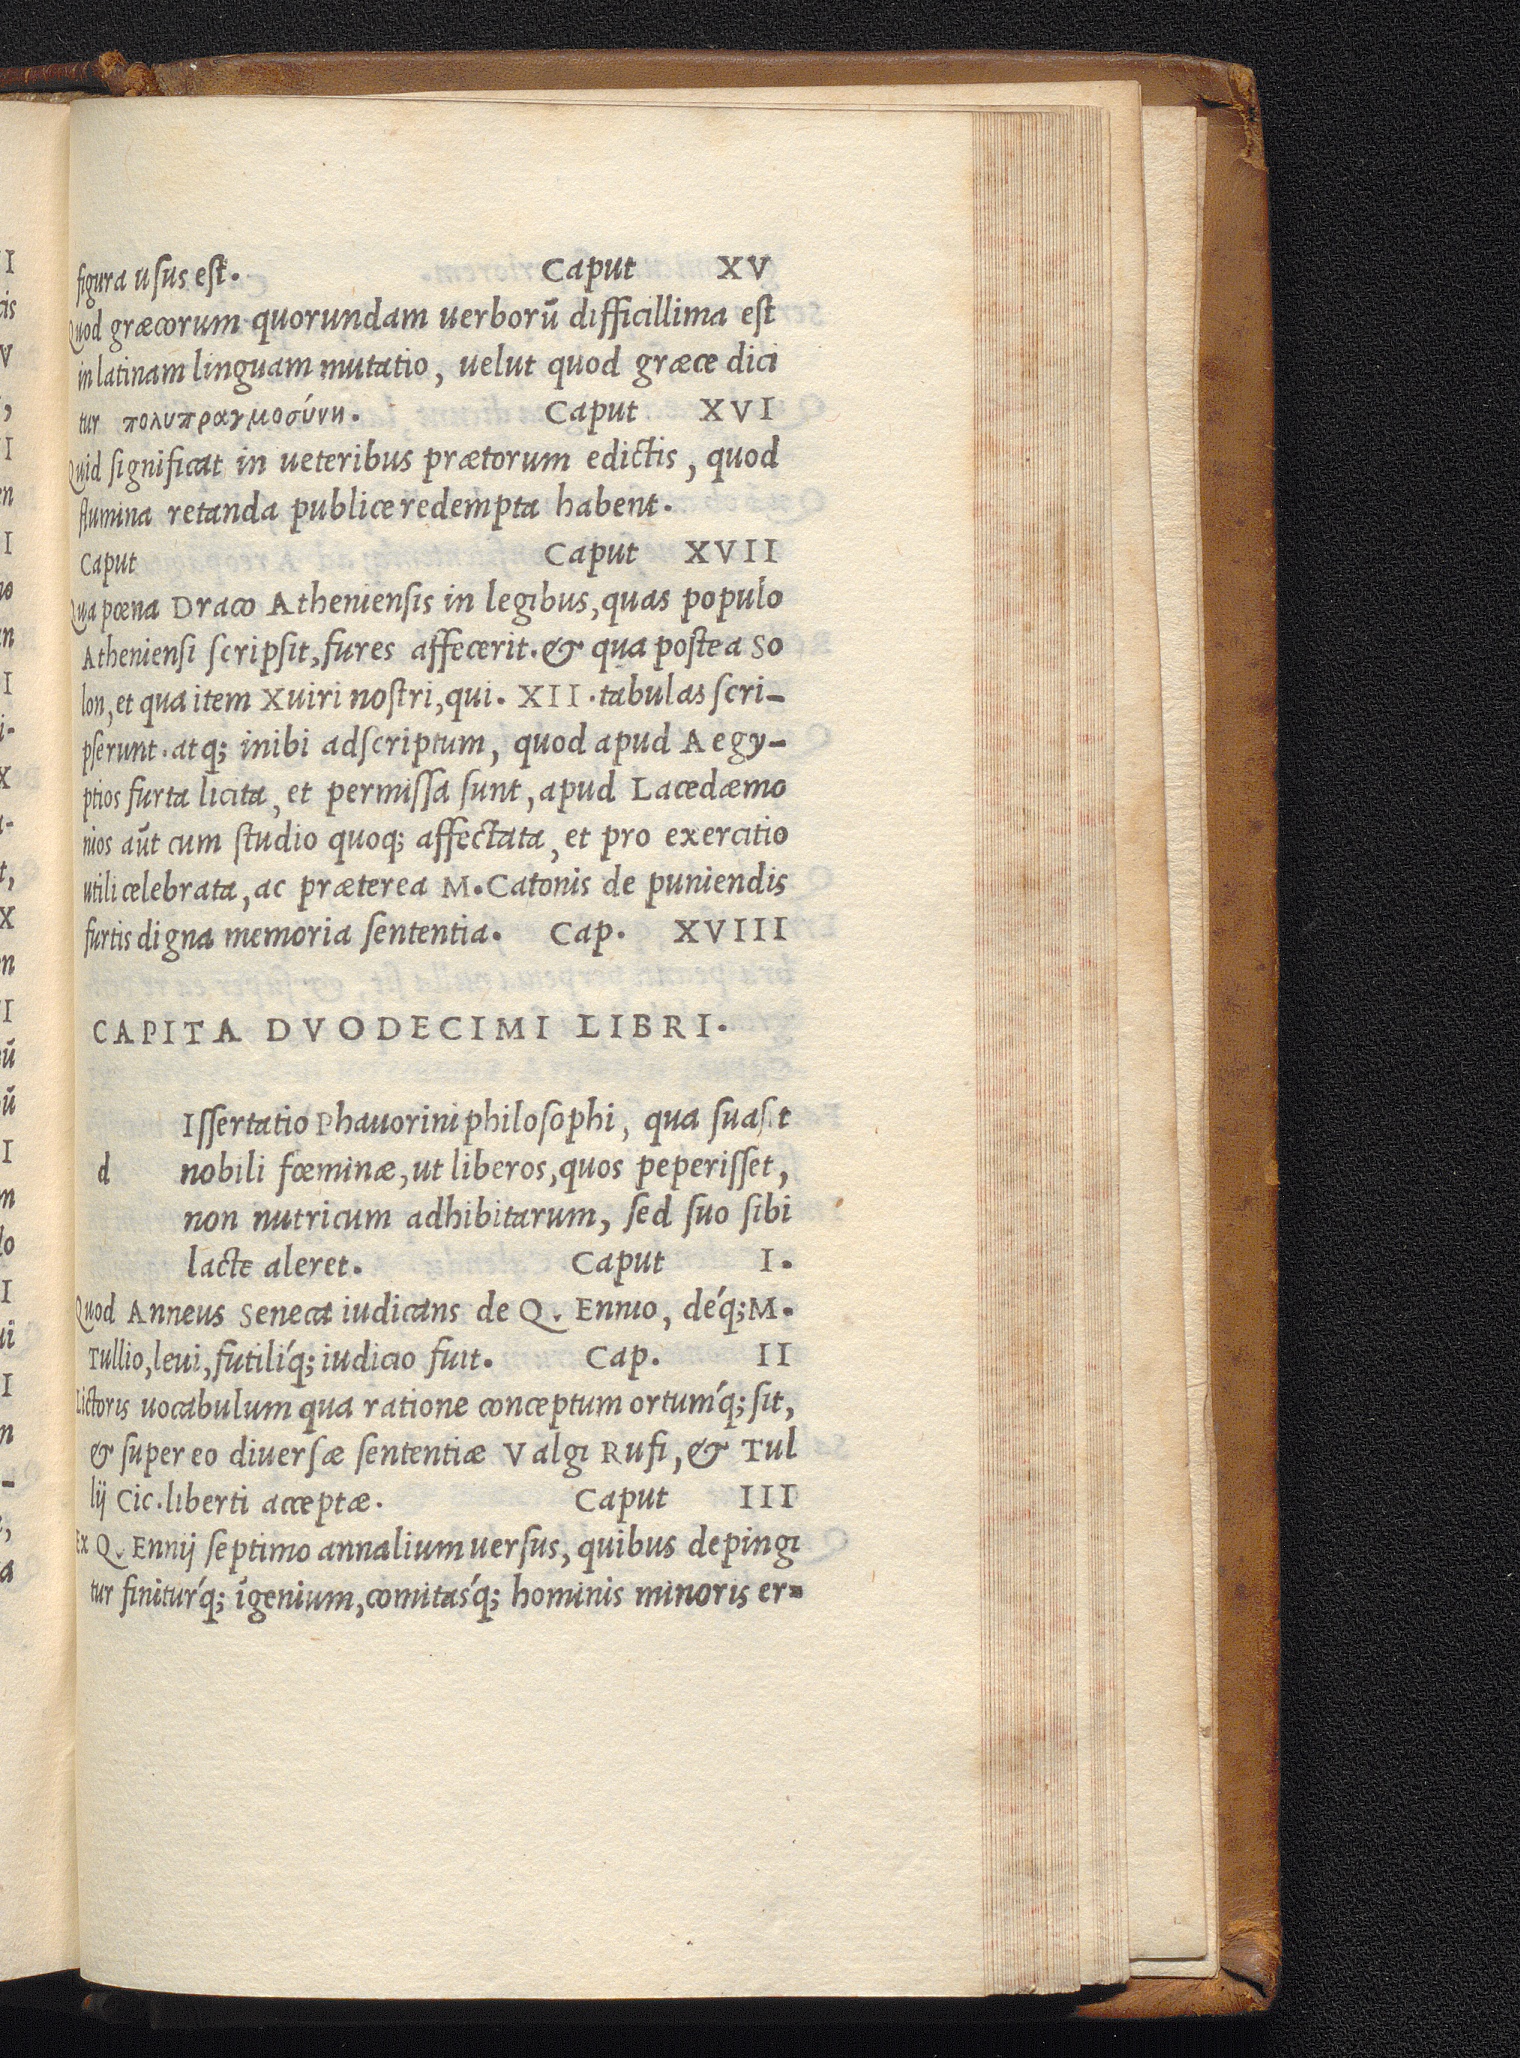 figura usus est. Caput XV
Quod græcorum quorundam uerborū difficillima est
in latinam linguam mutatio, uelut quod græce dici
tur πολυπραγμοσύνη. Caput XVI
Quid significat in ueteribus prætorum edictis, quod
flumina retanda publice redempta habent.
Caput Caput XVII
Qua pœna Draco Atheniensis in legibus, quas populo
Atheniensi scripsit, fures affecerit. & qua postea So
lon, et qua item Xuiri nostri, qui. XII. tabulas scri-
pserunt. atq; inibi adscriptum, quod apud Aegy-
ptios furta licita, et permissa sunt, apud Lacedæmo
nios aūt cum studio quoq; affectata, et pro exercitio
utili celebrata, ac præterea M. Catonis de puniendis
furtis digna memoria sententia. Cap. XVIII
CAPITA DVODECIMI LIBRI.
Issertatio Phauorini philosophi, qua suasit
d nobili fœminæ, ut liberos, quos peperisset,
non nutricum adhibitarum, sed suo sibi
lacte aleret. Caput I.
Quod Anneus Seneca iudicans de Q. Ennio, deq́; M.
Tullio, leui, futiliq́; iudicio fuit. Cap. II
Lictoris uocabulum qua ratione conceptum ortumq́; sit,
& super eo diuersæ sententiæ Valgi Rufi, & Tul
lij Cic. liberti acceptæ. Caput III
Ex Q. Ennij septimo annalium uersus, quibus depingi
tur finiturq́; īgenium, comitasq́; hominis minoris er-